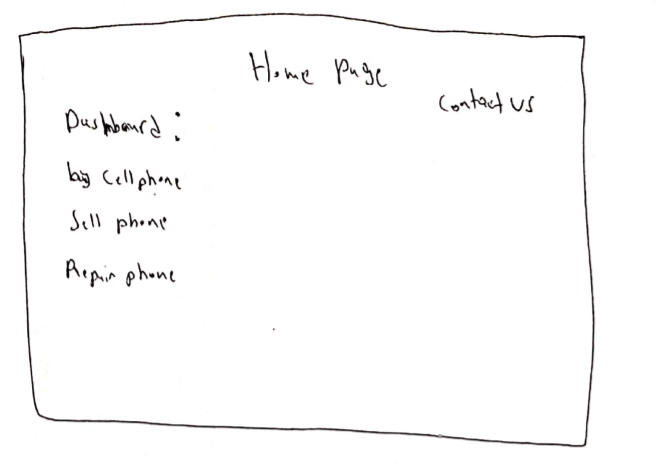 Home Page
Contact Us
Dashboard:
buy Cellphone
Sell phone
Repair phone